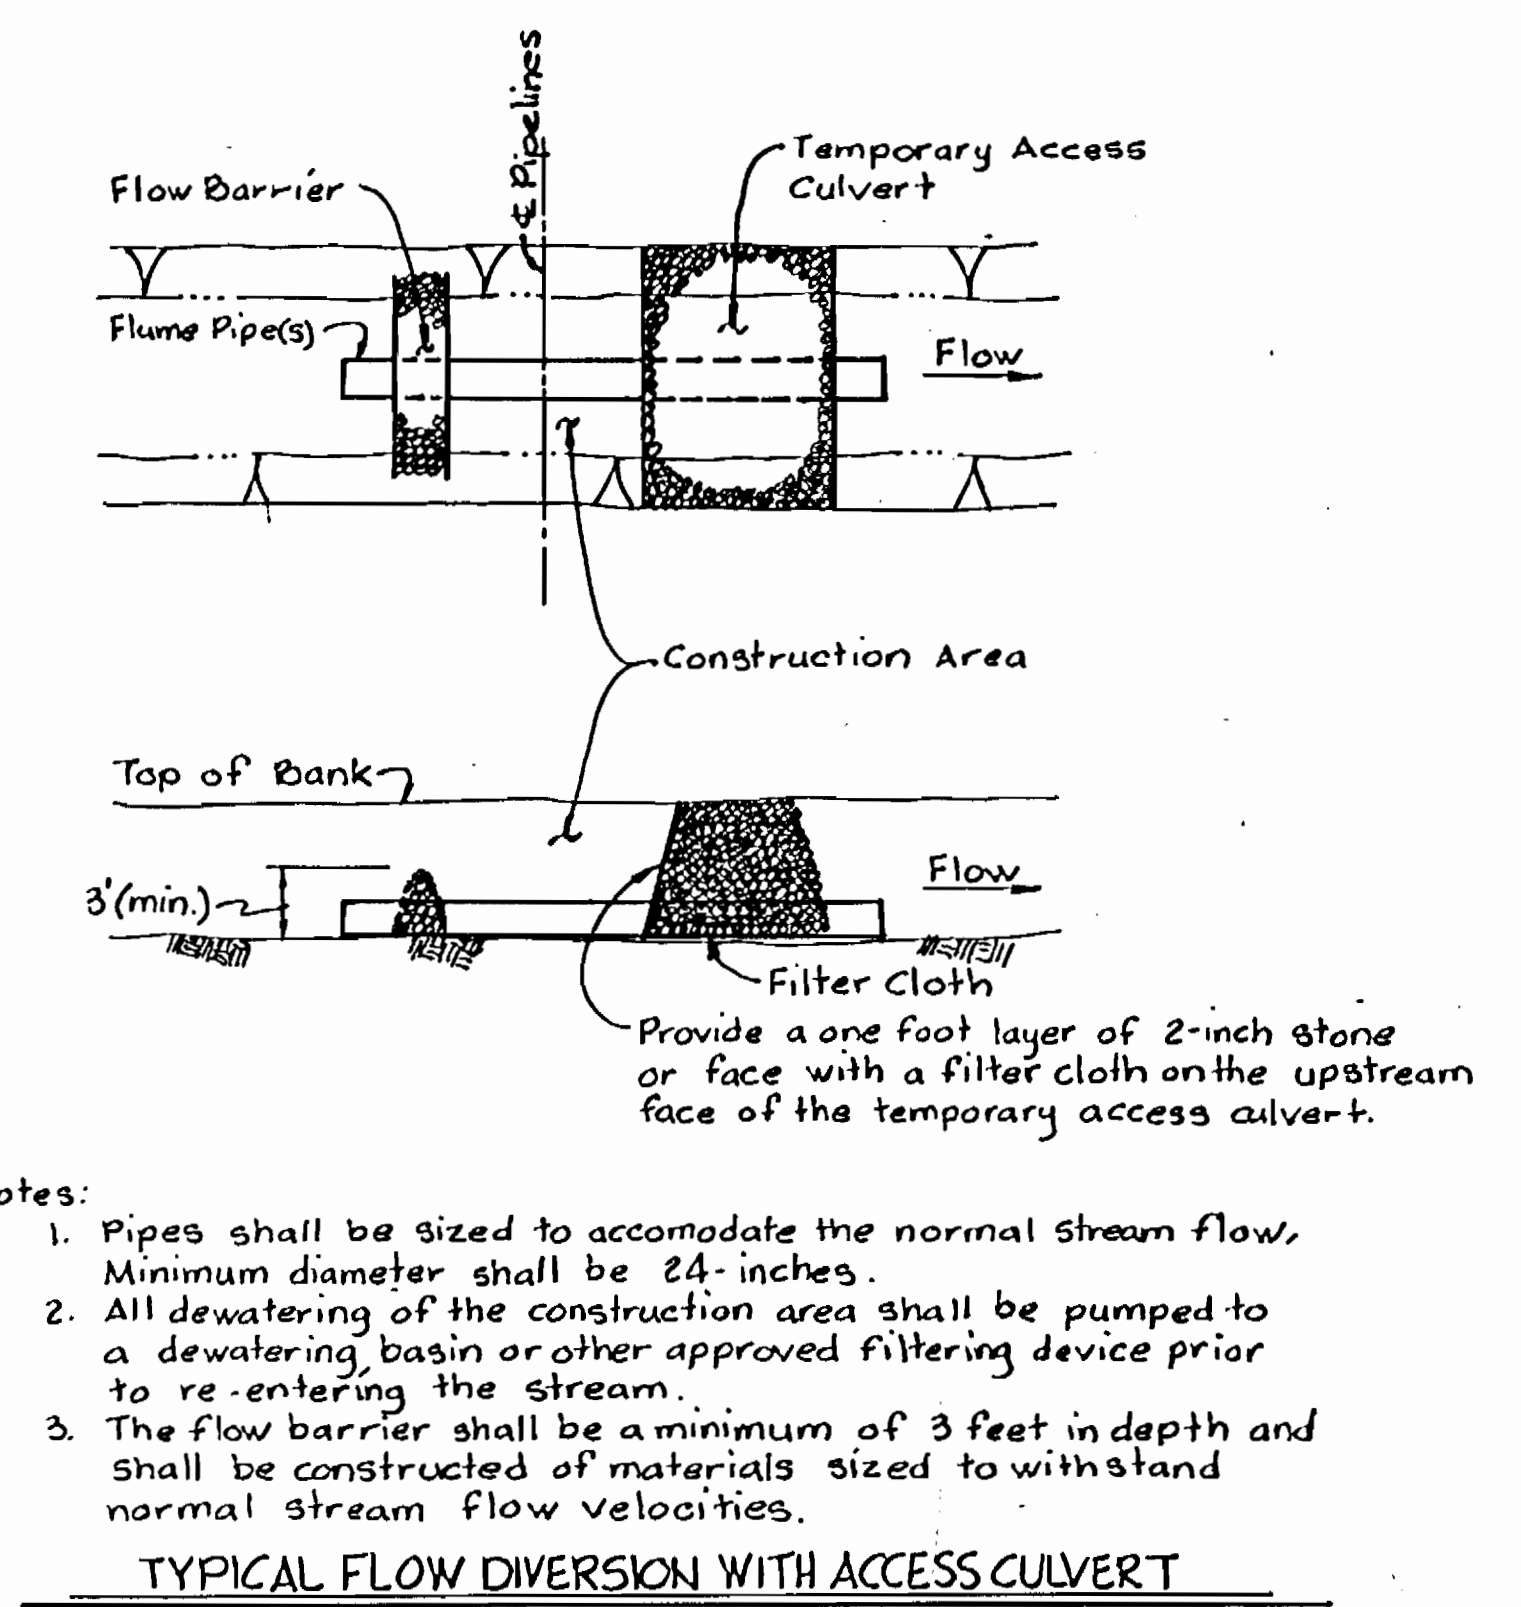 ℄ Pipelines
Temporary Access
Culvert
Flow Barrier
Flume Pipe(s)
Flow
Construction Area
Top of Bank
3'(min.)
Flow
Filter Cloth
Provide a one foot layer of 2-inch stone
or face with a filter cloth on the upstream
face of the temporary access culvert.
otes:
1. Pipes shall be sized to accomodate the normal stream flow,
Minimum diameter shall be 24-inches.
2. All dewatering of the construction area shall be pumped to
a dewatering basin or other approved filtering device prior
to re-entering the stream.
3. The flow barrier shall be a minimum of 3 feet in depth and
shall be constructed of materials sized to withstand
normal stream flow velocities.
TYPICAL FLOW DIVERSION WITH ACCESS CULVERT